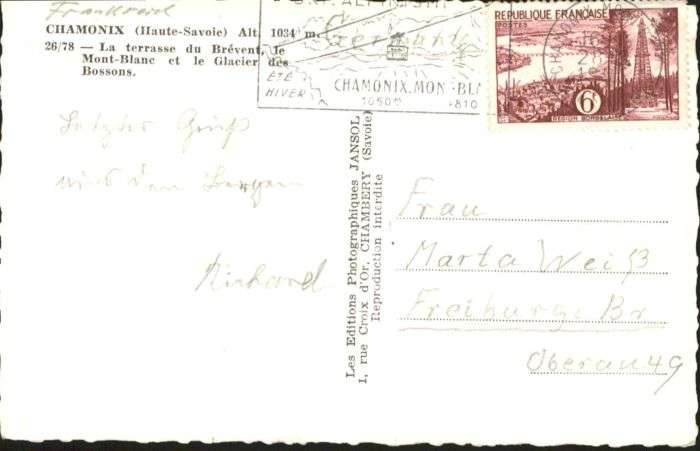 Frankreich
CHAMONIX (Haute-Savoie) Alt. 1034 m.
26/78 — La terrasse du Brévent, le
Mont-Blanc et le Glacier des
Bossons.
ÉTÉ
HIVER
CHAMONIX.MON -BLA
1050M -810
REPUBLIQUE FRANÇAISE
POSTES
6F
REGION BORDELAISE
Letzter Gruß
aus den Bergen
Richard
Les Editions Photographiques JANSOL
1, rue Croix d'Or, CHAMBÉRY (Savoie)
Reproduction interdite
Frau
Marta Weiß
Freiburg Br
Oberau 49